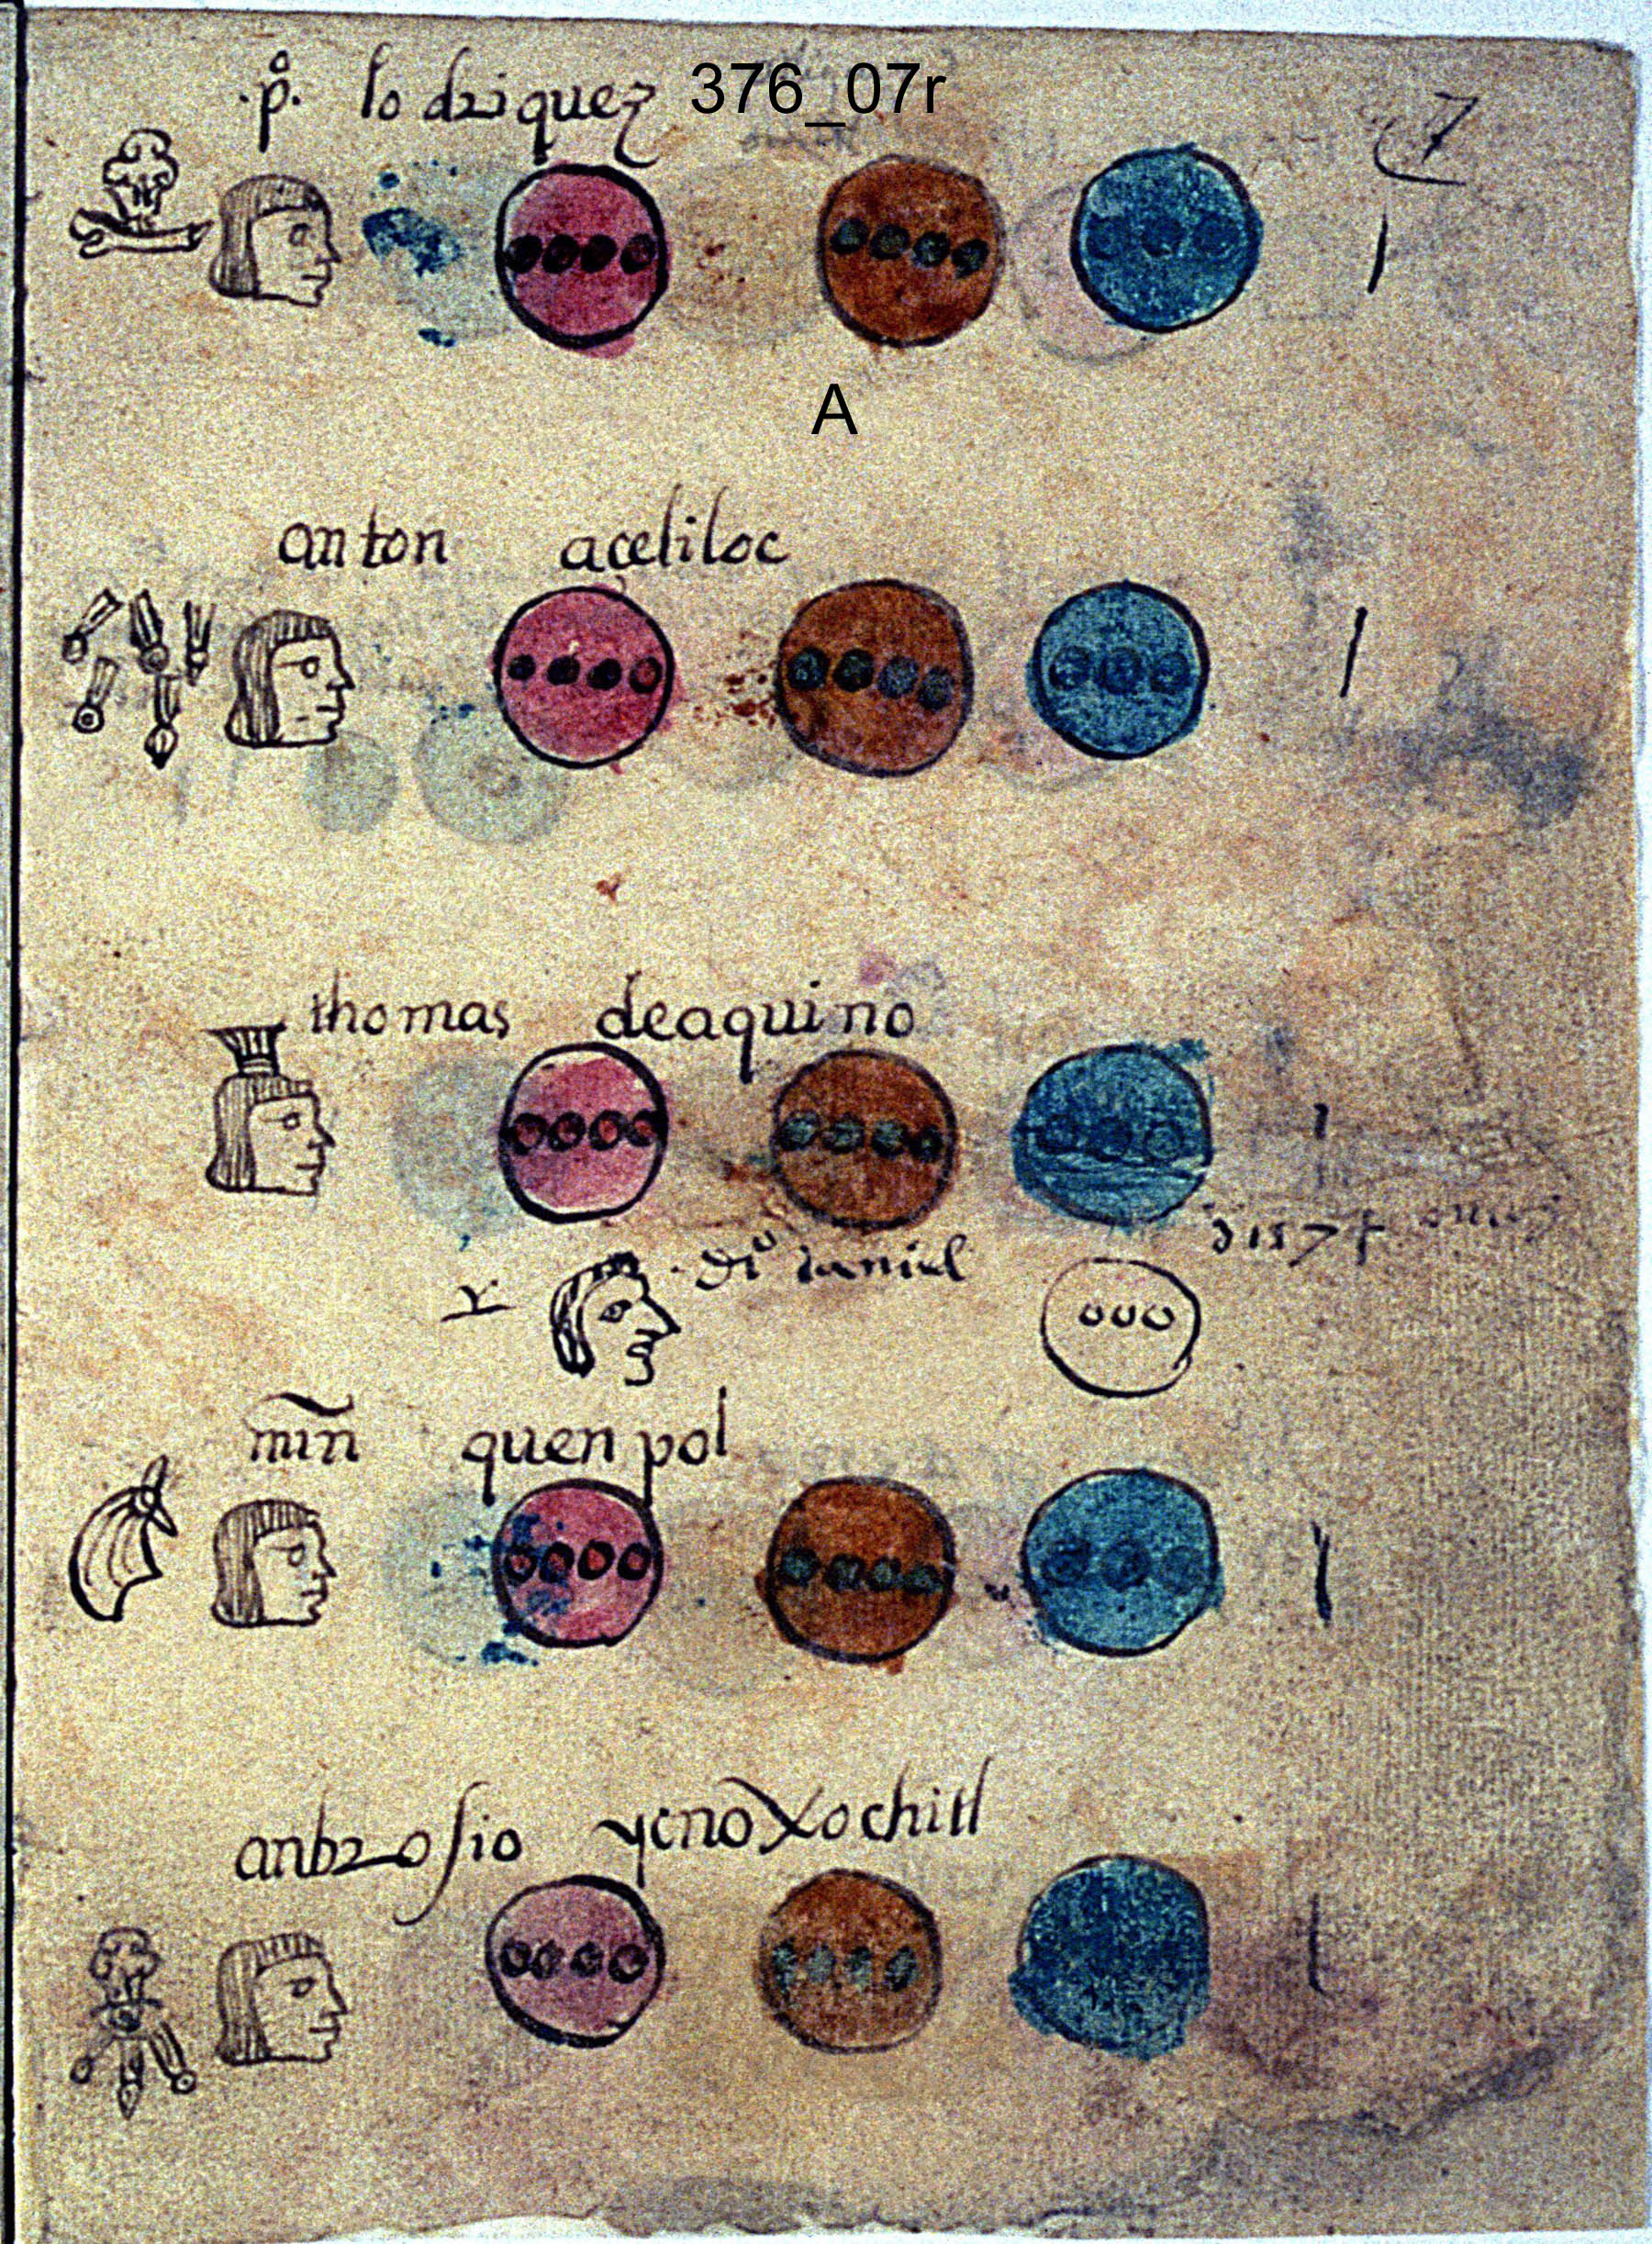 .p̊. lo driquez 376_07r 7
A
anton aceliloc
thomas deaquino
y .dio daniel
mīn quen pol
anbrosio ycnoxochitl